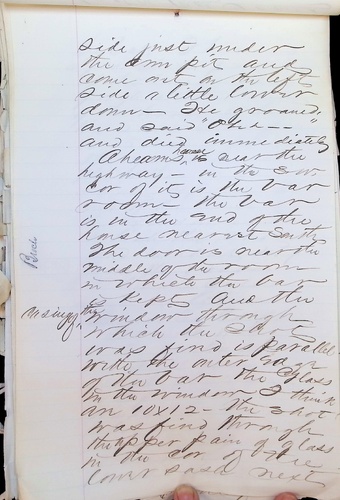 side just under
the arm pit and
come out on the left
side a little lower
down - He groaned
and said "Ohh--
and died immediately
Ahearns house is near the
highway - in the S.W.
cor of it is the bar
room - The bar
is in the end of the
house nearest South
The door is near the
middle of the room
in which the bar
is kept and the
window through
which the shot
was fired is parallel
with the outer edge
of the bar the glass
in the window I think
an 10x12 - The shot
was fired through
the upper pain of glass
in the cor of the
lower sash next